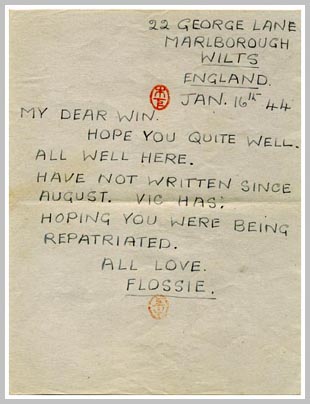 22 GEORGE LANE
MARLBOROUGH
WILTS
ENGLAND.
JAN. 16th 44
MY DEAR WIN.
HOPE YOU QUITE WELL.
ALL WELL HERE.
HAVE NOT WRITTEN SINCE
AUGUST. VIC HAS.
HOPING YOU WERE BEING
REPATRIATED.
ALL LOVE.
FLOSSIE.